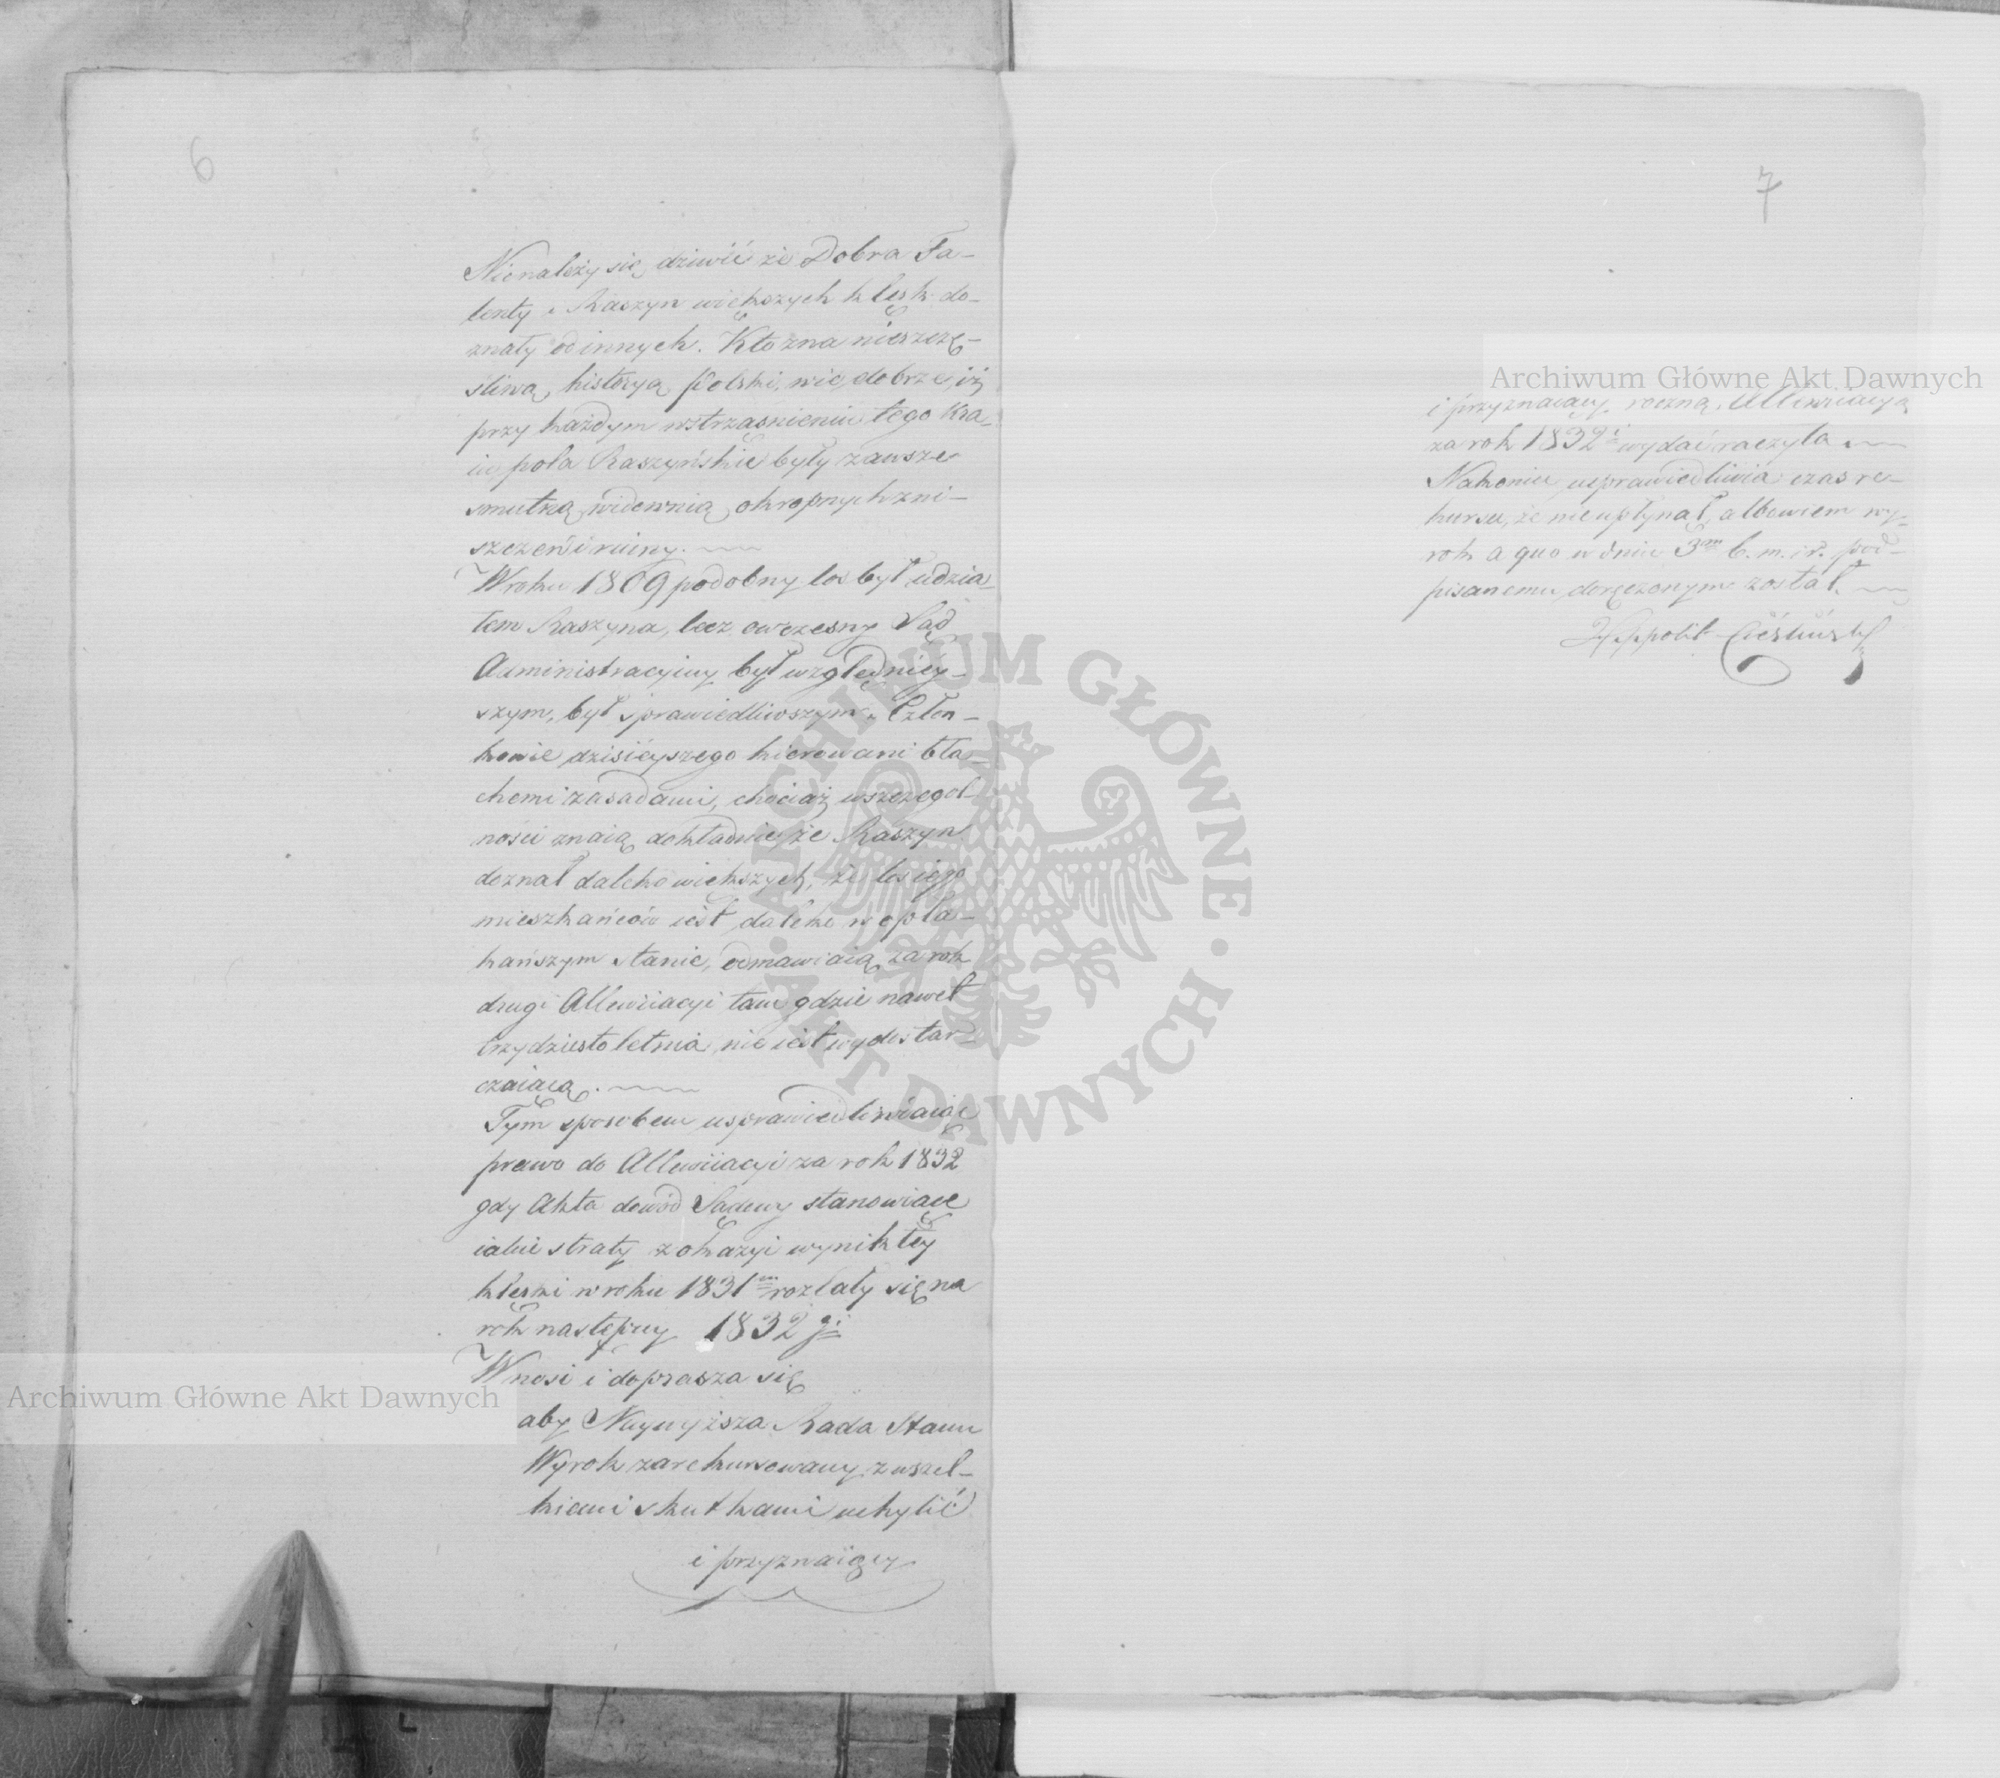 6
Nienależy się dziwić że Dobra Fa-
lenty i Raszyn większych klęsk do-
znały od innych. Kto zna nieszczę-
śliwą historyą Polski, wie dobrze iż
przy każdym wstrząsnieniu tego Kra-
iu pola Raszyńskie były zawsze
smutną widownią okropnych zni-
szczeń i ruiny.
W roku 1809 podobny los był udzia-
łem Raszyna, lecz owczesny Sąd
Administracyiny był względniey-
szym, był sprawiedliwszym. Człon-
kowie dzisieyszego kierowani bła-
chemi zasadami, chociaż wszczegol-
ności znaią dokładnie, że Raszyn
doznał daleko większych, że los iego
mieszkańców iest daleko w opła-
kańszym stanie, odmawiaią za rok
drugi Allewiiacyi tam gdzie nawet
trzydziestoletnia nie iest wydostar-
czaiącą.
Tym sposobem usprawiedliwiaiąc
prawo do Allewiiacyi za rok 1832
gdy Akta dowód Sądowy stanowiące
iakie straty z okazyi wynikłey
klęski w roku 1831m rozlały się na
rok następny 1832gi
Wnosi i doprasza się
aby Naywyższa Rada Stanu
Wyrok zarekursowany z wszel-
kiemi skutkami uchylić
i przyznaiący
7
i przyznaiący roczną Allewiiacyą
za rok 1832i wydać raczyła
Nakoniec usprawiedliwia czas re-
kursu, że nieupłynął, albowiem wy-
rok a quo w dniu 3m b. m. i r. pod-
pisanemu doręczonym został.
Hyppolit
Archiwum Główne Akt Dawnych
Archiwum Główne Akt Dawnych
ARCHIWUM GŁÓWNE · AKT DAWNYCH ·